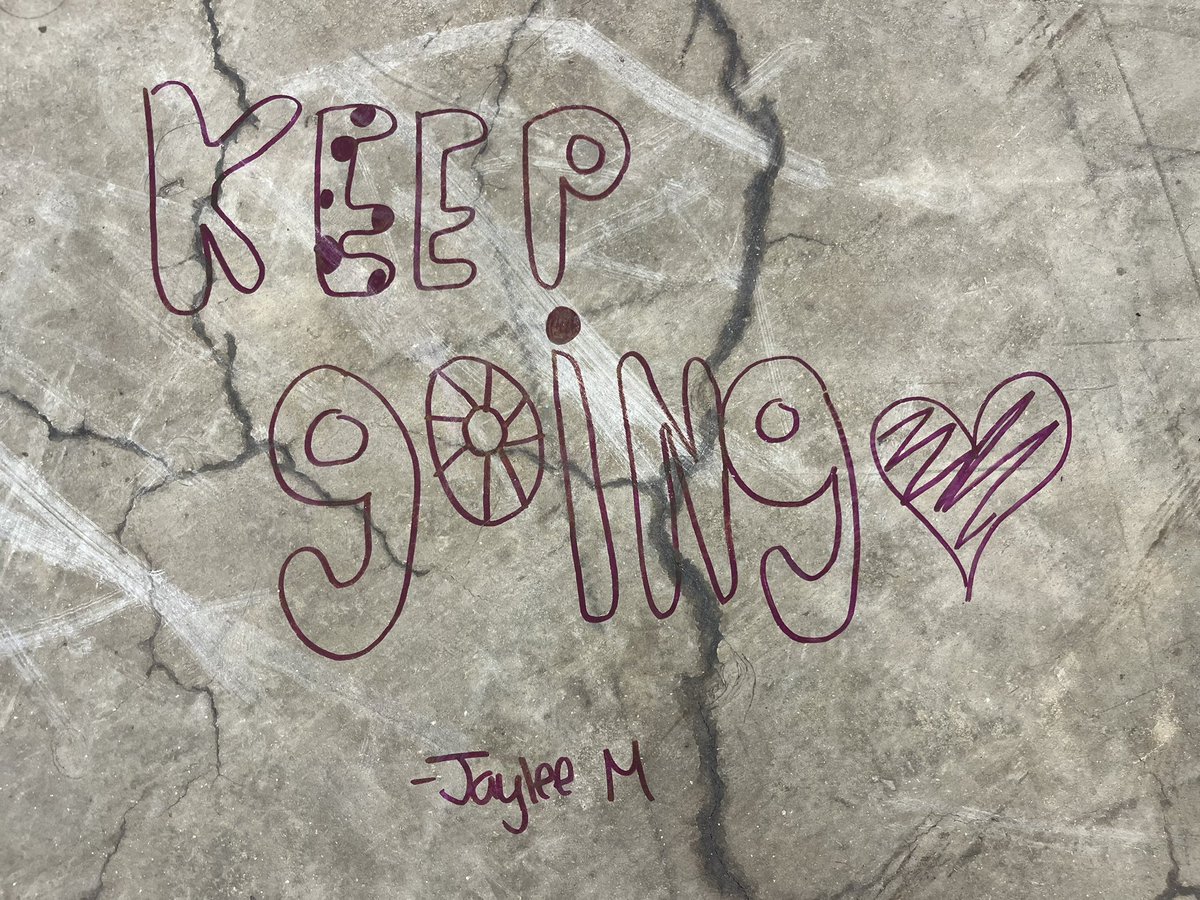 KEEP
goiNg
-Jaylee M